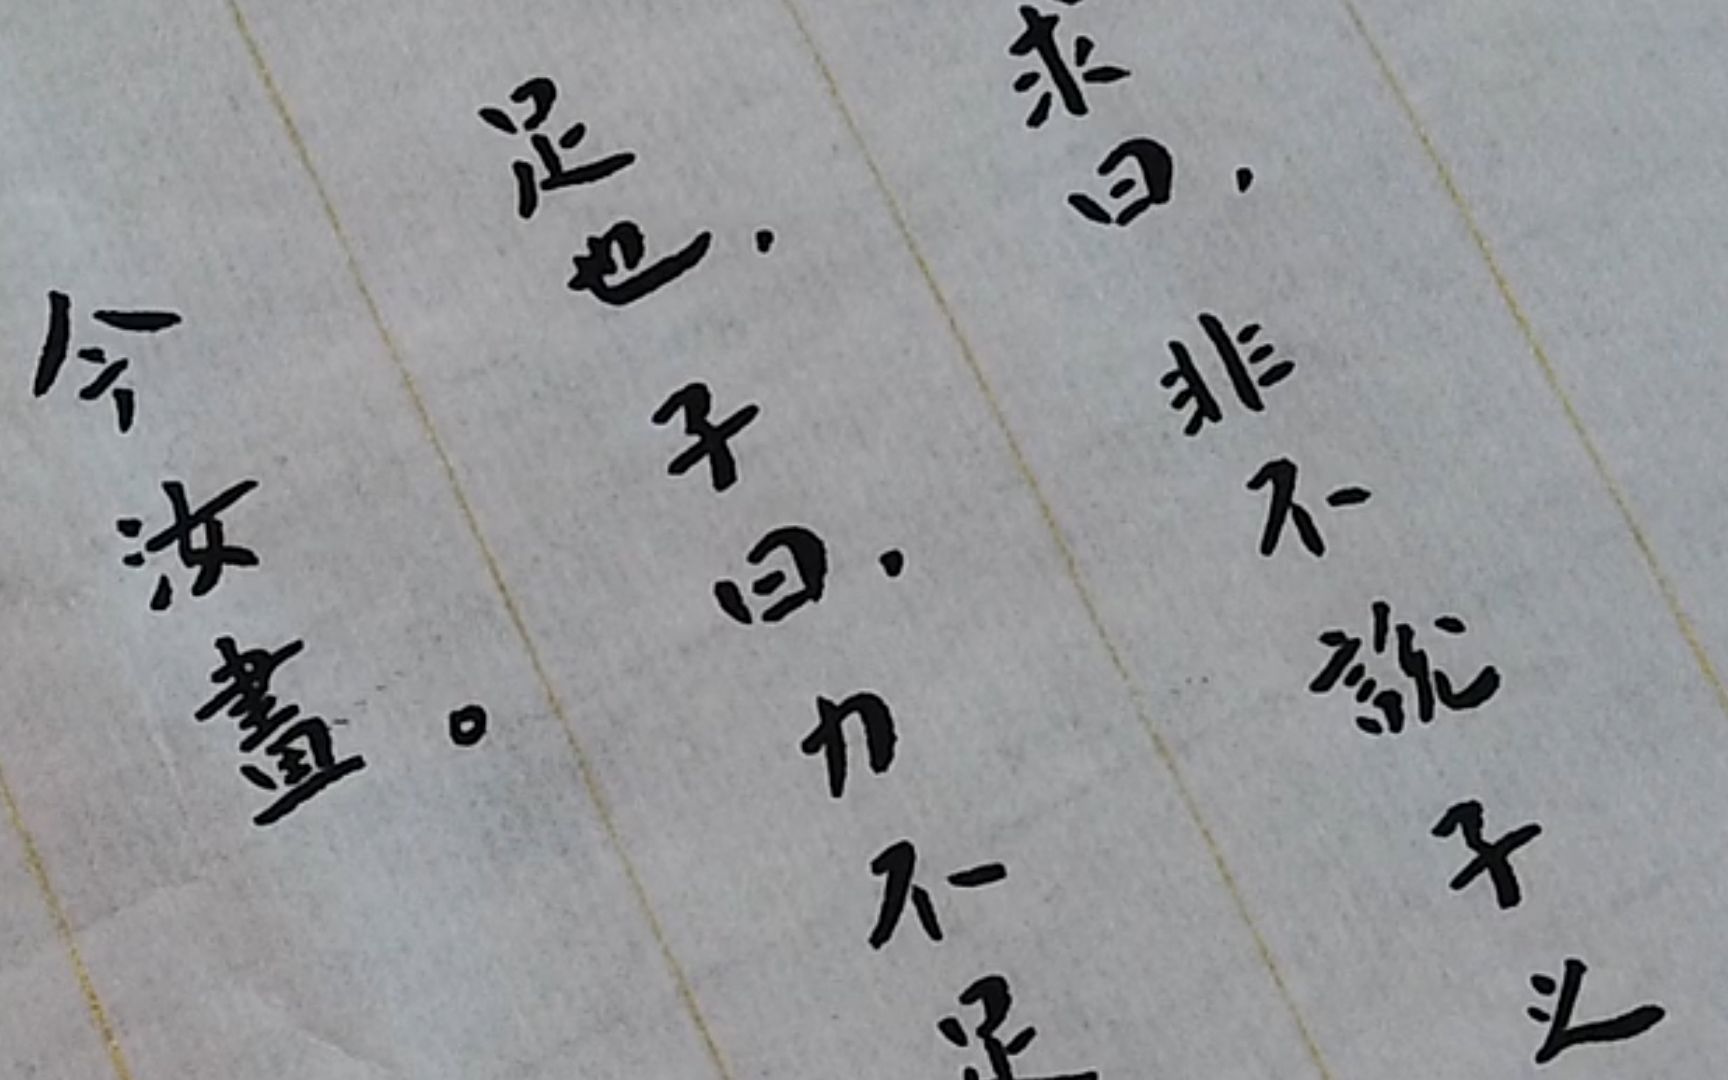 求曰．非不說子之
足也．子曰．力不足
今汝畫。